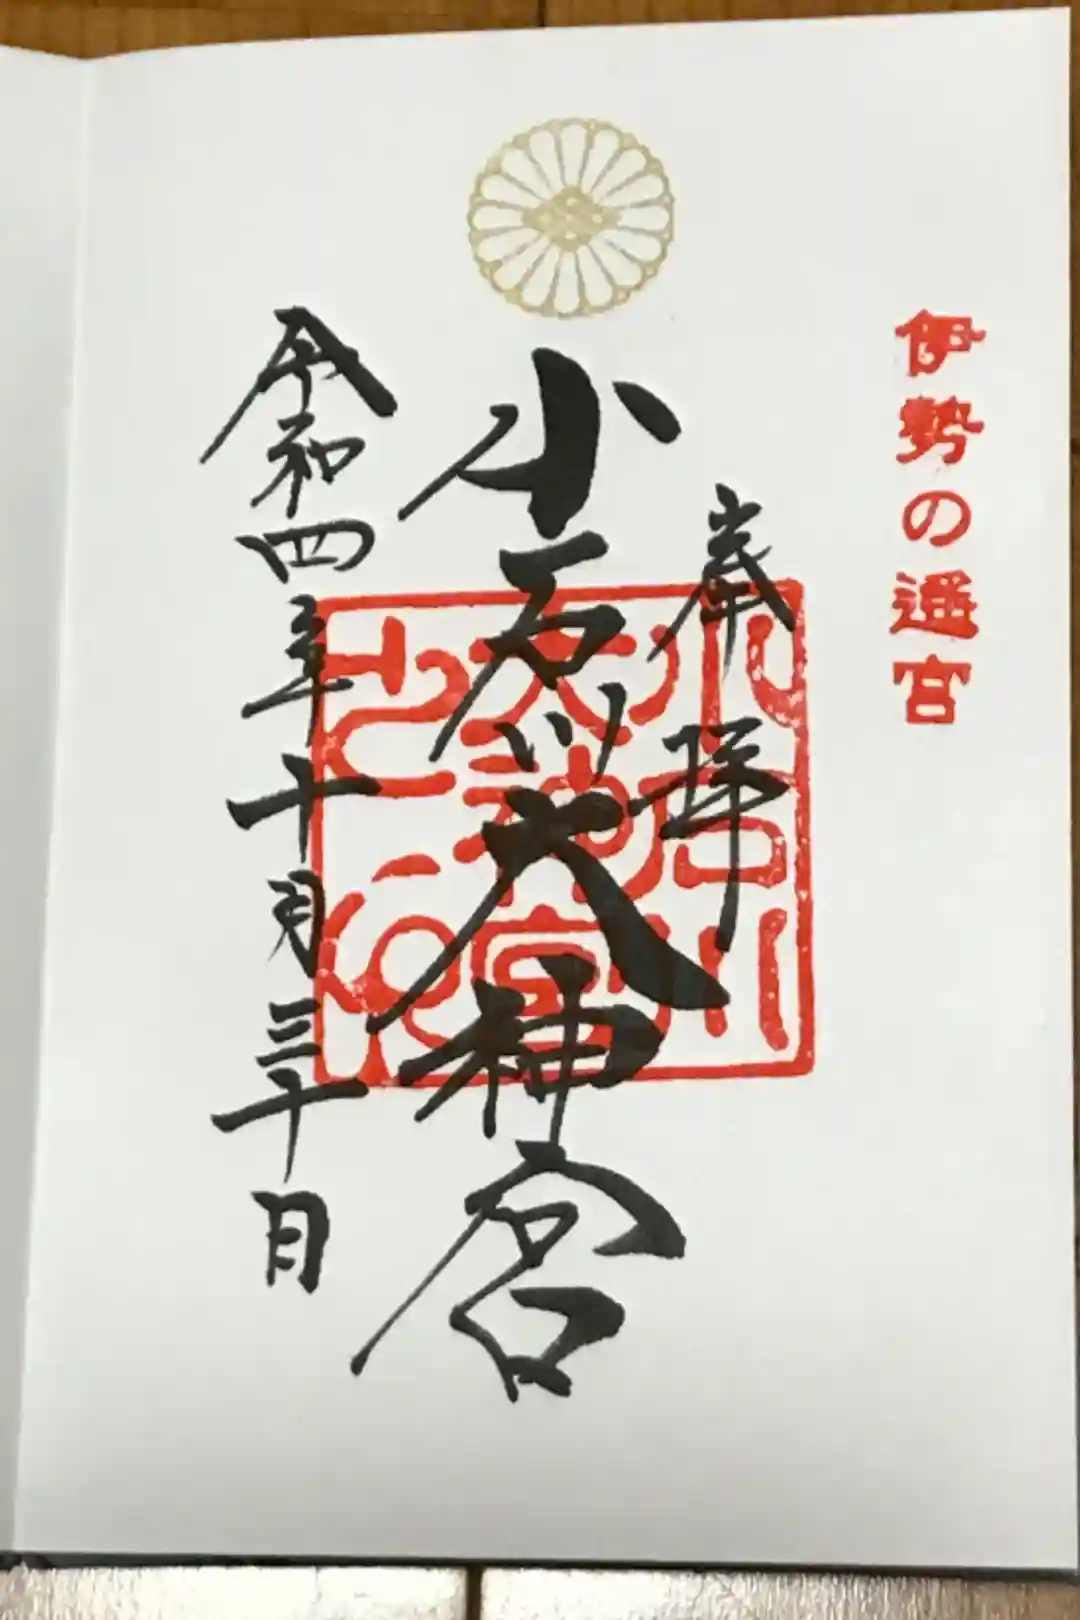 伊勢の遥宮
奉拝
小石川大神宮
小石川
大神宮
令和四年十月三十日